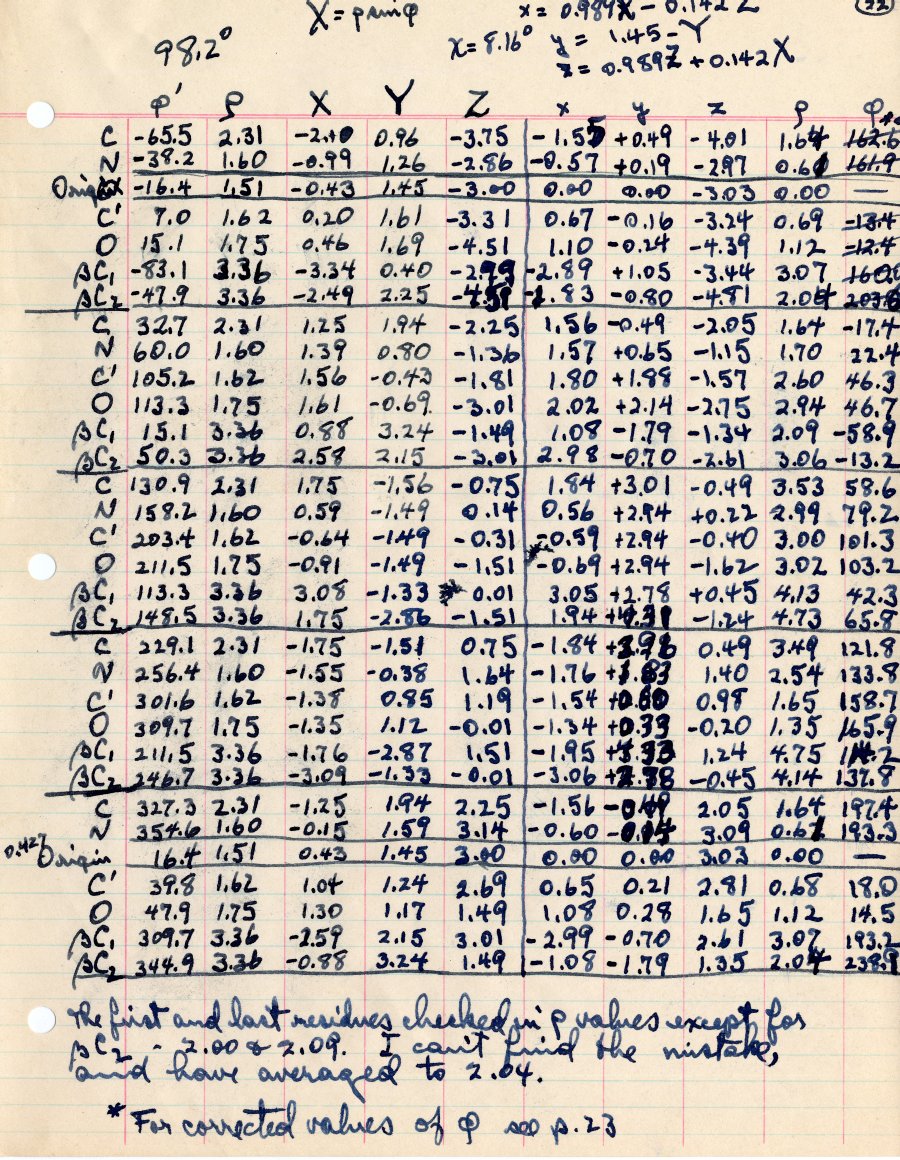 X = ρ sin φ x = 0.989X − 0.142 Z (22)
98.2° x = 8.16° y = 1.45 − Y
z = 0.989Z + 0.142 X
φ' ρ X Y Z x y z ρ
C -65.5 2.31 0.96 -3.75 -1.55 +0.49 -4.01 1.64 162.6
N -38.2 1.60 -0.99 1.26 -2.86 -0.57 +0.19 -2.97 0.61 161.9
Origin -16.4 1.51 -0.43 1.45 -3.00 0.00 0.00 -3.03 0.00 —
C' 7.0 1.62 0.20 1.61 -3.31 0.67 -0.16 -3.24 0.69 -13.4
O 15.1 1.75 0.46 1.69 -4.51 1.10 -0.24 -4.39 1.12 -12.4
βC₁ -83.1 3.36 -3.34 0.40 -2.99 -2.89 +1.05 -3.44 3.07 160.0
βC₂ -47.9 3.36 -2.49 2.25 -0.80 -4.81 2.04
C 32.7 2.31 1.25 1.94 -2.25 1.56 -0.49 -2.05 1.64 -17.4
N 60.0 1.60 1.39 0.80 -1.36 1.57 +0.65 -1.15 1.70 22.4
C' 105.2 1.62 1.56 -0.43 -1.81 1.80 +1.88 -1.57 2.60 46.3
O 113.3 1.75 1.61 -0.69 -3.01 2.02 +2.14 -2.75 2.94 46.7
βC₁ 15.1 3.36 0.88 3.24 -1.49 1.08 -1.79 -1.34 2.09 -58.9
βC₂ 50.3 3.36 2.58 2.15 -3.01 2.98 -0.70 -2.61 3.06 -13.2
C 130.9 2.31 1.75 -1.56 -0.75 1.84 +3.01 -0.49 3.53 58.6
N 158.2 1.60 0.59 -1.49 0.14 0.56 +2.94 +0.22 2.99 79.2
C' 203.4 1.62 -0.64 -1.49 -0.31 -0.59 +2.94 -0.40 3.00 101.3
O 211.5 1.75 -0.91 -1.49 -1.51 -0.69 +2.94 -1.62 3.02 103.2
βC₁ 113.3 3.36 3.08 -1.33 0.01 3.05 +2.78 +0.45 4.13 42.3
βC₂ 148.5 3.36 1.75 -2.86 -1.51 1.94 +4.31 -1.24 4.73 65.8
C 229.1 2.31 -1.75 -1.51 0.75 -1.84 0.49 3.49 121.8
N 256.4 1.60 -1.55 -0.38 1.64 -1.76 +1.83 1.40 2.54 133.8
C' 301.6 1.62 -1.38 0.85 1.19 -1.54 +0.60 0.98 1.65 158.7
O 309.7 1.75 -1.35 1.12 -0.01 -1.34 +0.33 -0.20 1.35 165.9
βC₁ 211.5 3.36 -1.76 -2.87 1.51 -1.95 1.24 4.75
βC₂ 246.7 3.36 -3.09 -1.33 -0.01 -3.06 +2.78 -0.45 4.14 137.8
C 327.3 2.31 -1.25 1.94 2.25 -1.56 -0.49 2.05 1.64 197.4
N 354.6 1.60 -0.15 1.59 3.14 -0.60 -0.14 3.09 0.61 193.3
0.427 Origin 16.4 1.51 0.43 1.45 3.00 0.00 0.00 3.03 0.00 —
C' 39.8 1.62 1.04 1.24 2.69 0.65 0.21 2.81 0.68 18.0
O 47.9 1.75 1.30 1.17 1.49 1.08 0.28 1.65 1.12 14.5
βC₁ 309.7 3.36 -2.59 2.15 3.01 -2.99 -0.70 2.61 3.07 193.2
βC₂ 344.9 3.36 -0.88 3.24 1.49 -1.08 -1.79 1.35 2.04 238.9
The first and last residues checked in ρ values except for
βC₂ - 2.00 & 2.09. I can't find the mistake,
and have averaged to 2.04.
* For corrected values of φ see p. 23